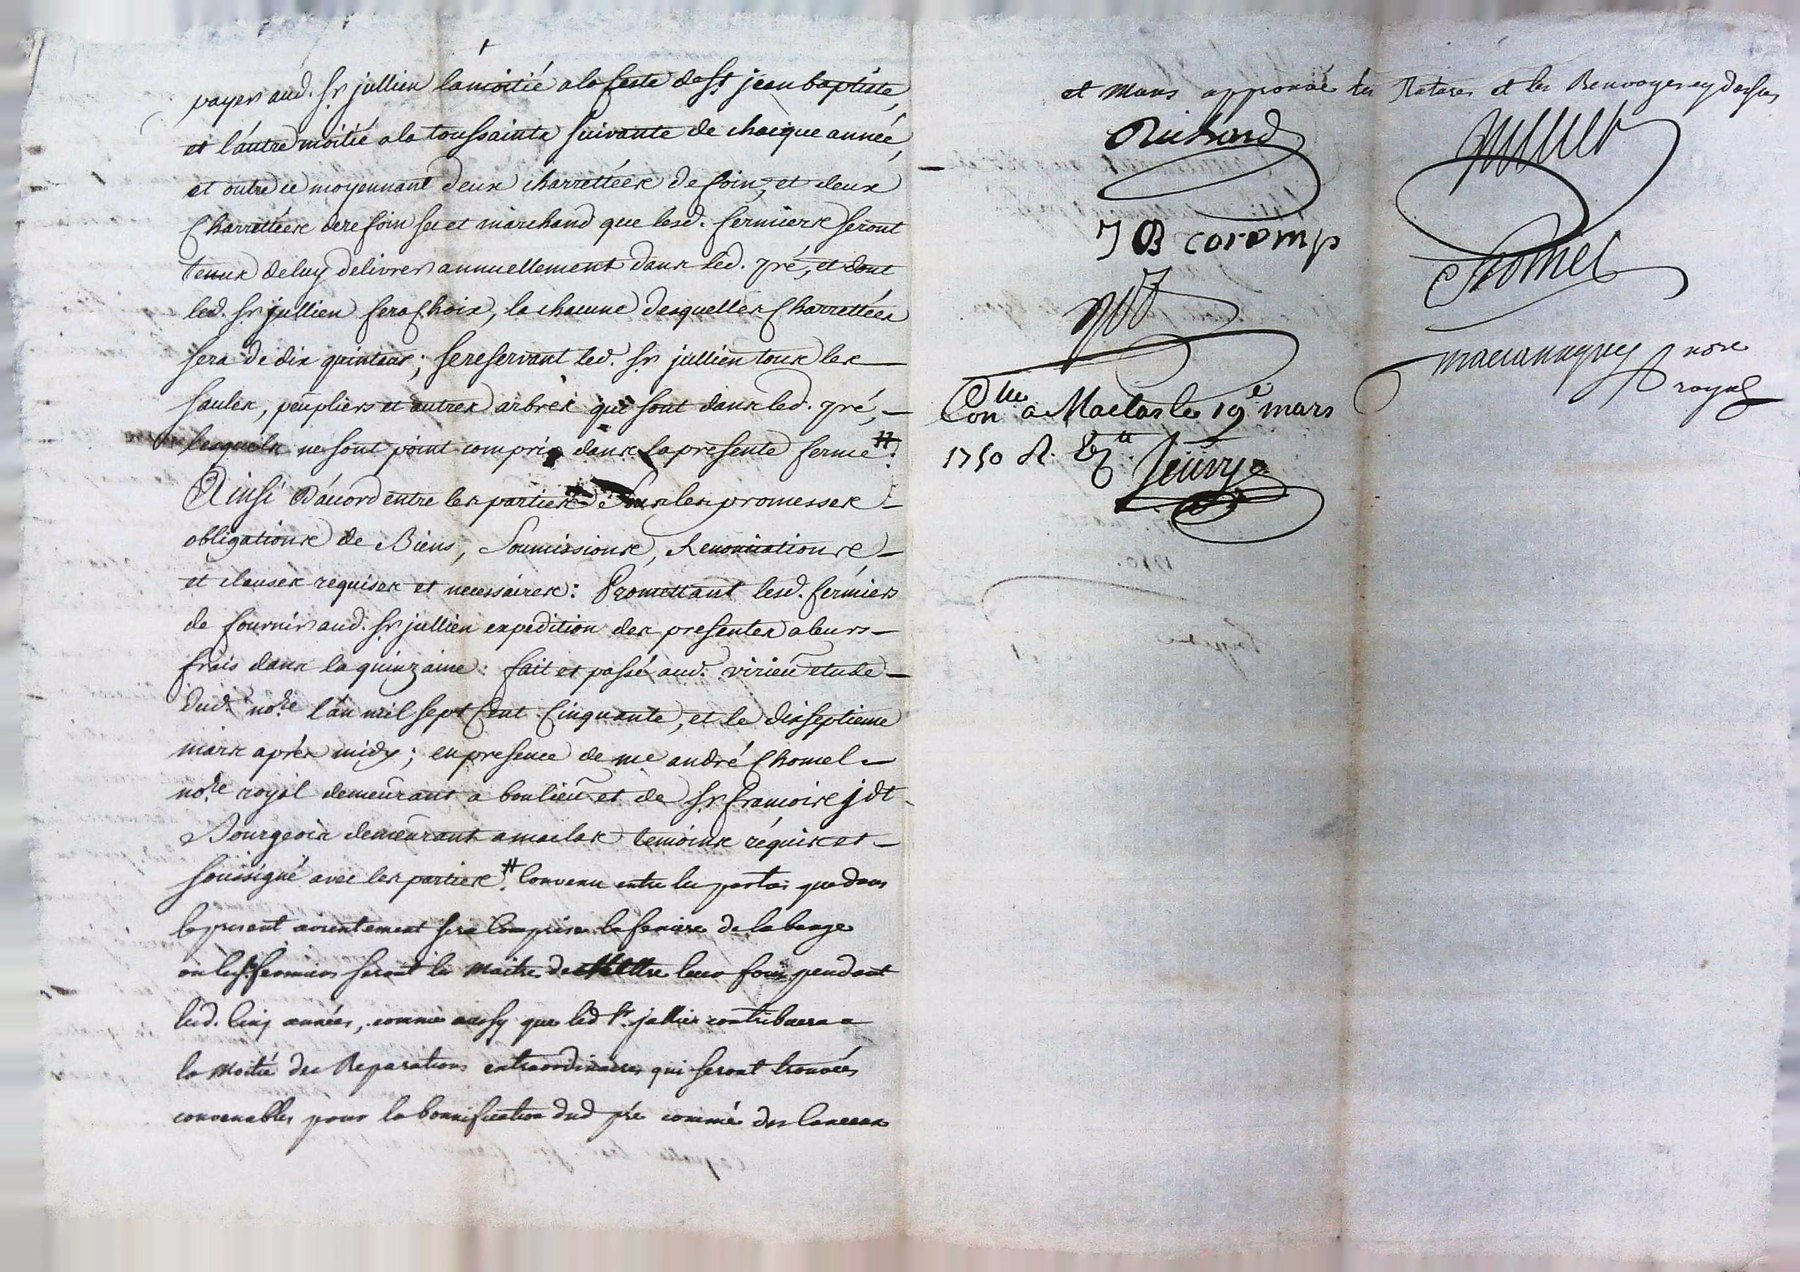 payer aud. Sr jullien la moitié a la feste de St jean baptiste,
et l'autre moitié a la toussainte suivante de chaique année,
et outre ce moyennant deux charrettées de foin, et deux
Charrettées de refoin sec et marchand que lesd. fermiers seront
tenus de luy delivrer annuellement dans led. pré, et dont
led. Sr jullien fera Choix, la chacune desquelles Charrettées
sera de dix quintaux; se reservant led. Sr jullien tous les
saules, peupliers et autres arbres qui sont dans led. pré,
lesquels ne sont point compris dans la presente ferme #.
Ainsi D'acord entre les parties sous les promesses
obligations de Biens, Soumissions, Renonciations,
et clauses requises et necessaires: Promettant lesd. fermiers
de fournir aud. Sr jullien expedition des presentes a leurs
frais dans la quinzaine: fait et passé aud. virieu etude
dud. nore l'an mil sept Cent Cinquante, et le dixseptieme
mars après midy; en presence de me andré Chomel
nore royal demeurant a boulieu et de Sr francois jdt
Bourgeois demeurant a maclas temoins réquis et
soussigné avec les parties. # Convenu entre les parties que dans
le present arrentement sera Comprise la feniere de la
ou les. fermiers seront les maitre de Mettre leur foin pendant
lesd. Cinq années, comme aussy que led Sr. jullien contribuera a
la moitié des Reparations extraordinaires qui seront trouvées
convenables pour la bonnification dud pré comme des Canceaux
et Murs approuvé les Ratures et les Renvoyes cy dessus
Richard jullien
J B coromp Chomel
jdt
nore
royal
Conlle a Maclas le 19e mars
1750 R.